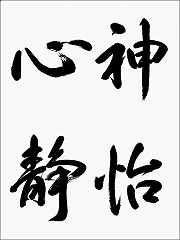 心神
静怡